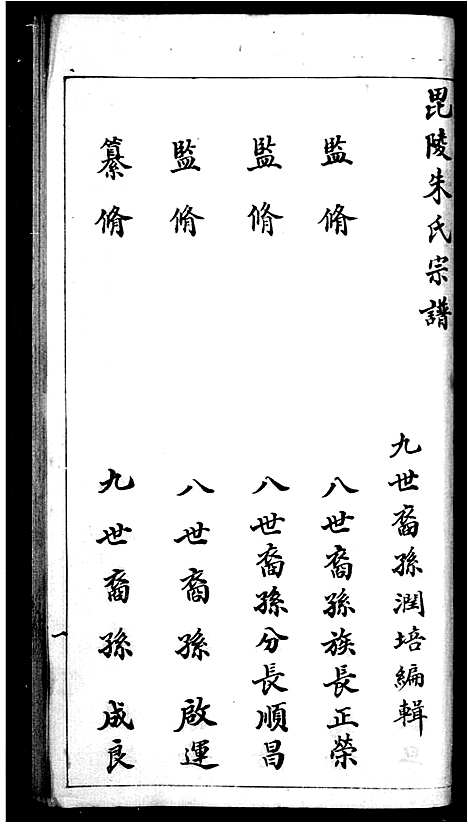 毘陵朱氏宗譜
九世裔孫潤培編輯
監脩 八世裔孫族長正榮
監脩 八世裔孫分長順昌
監脩 八世裔孫 啟運
纂脩 九世裔孫 成良